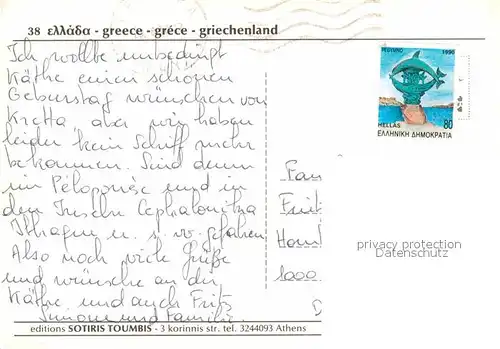 38 ελλάδα - greece - gréce - griechenland
Ich wollte unbedingt
Käthe einen schönen
Geburstag wünschen von
Kretta aber wir haben
leider kein Schiff mehr
bekommen. Sind dann
im Péloponèse und in
den Inseln Cephalonitha
Ithaguen u. s. w. gefahren
Also noch viele Grüße
und wünsche an der
Käthe und auch Frits
Simone und Familie.
ΡΕΘΥΜΝΟ 1990
HELLAS 80
ΕΛΛΗΝΙΚΗ ΔΗΜΟΚΡΑΤΙΑ
Fam
Frit
Ham
1000
D
privacy protection
Datenschutz
editions SOTIRIS TOUMBIS - 3 korinnis str. tel. 3244093 Athens